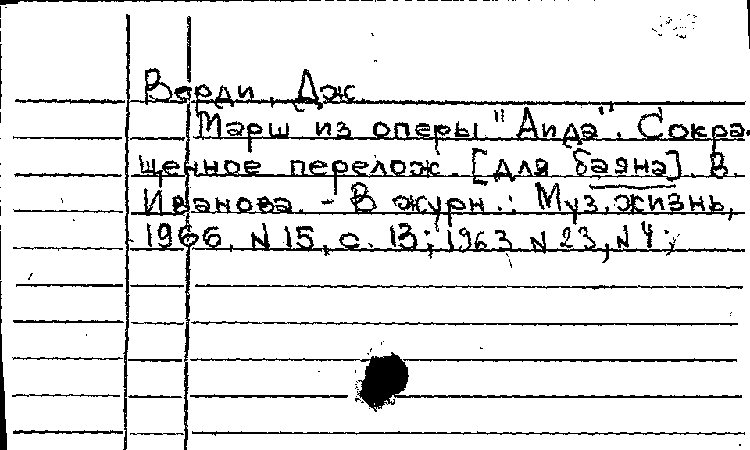 Верди, Дж.
Марш из оперы "Аида". Сокра-
щенное перелож. [для баяна] В.
Иванова. - В журн.: Муз. жизнь,
1966, N 15, с. 13; 1963 N 23, N 4;